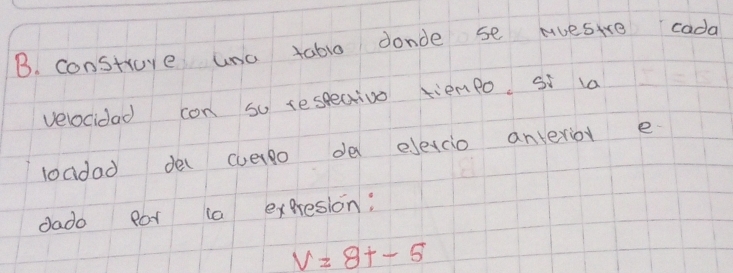 B. construye una tabla donde se muestre cada
velocidad con su respectivo tiempo. si la
locidad del cuerpo del ejercicio anterior e
dado por la expresión:
V = 8t - 5